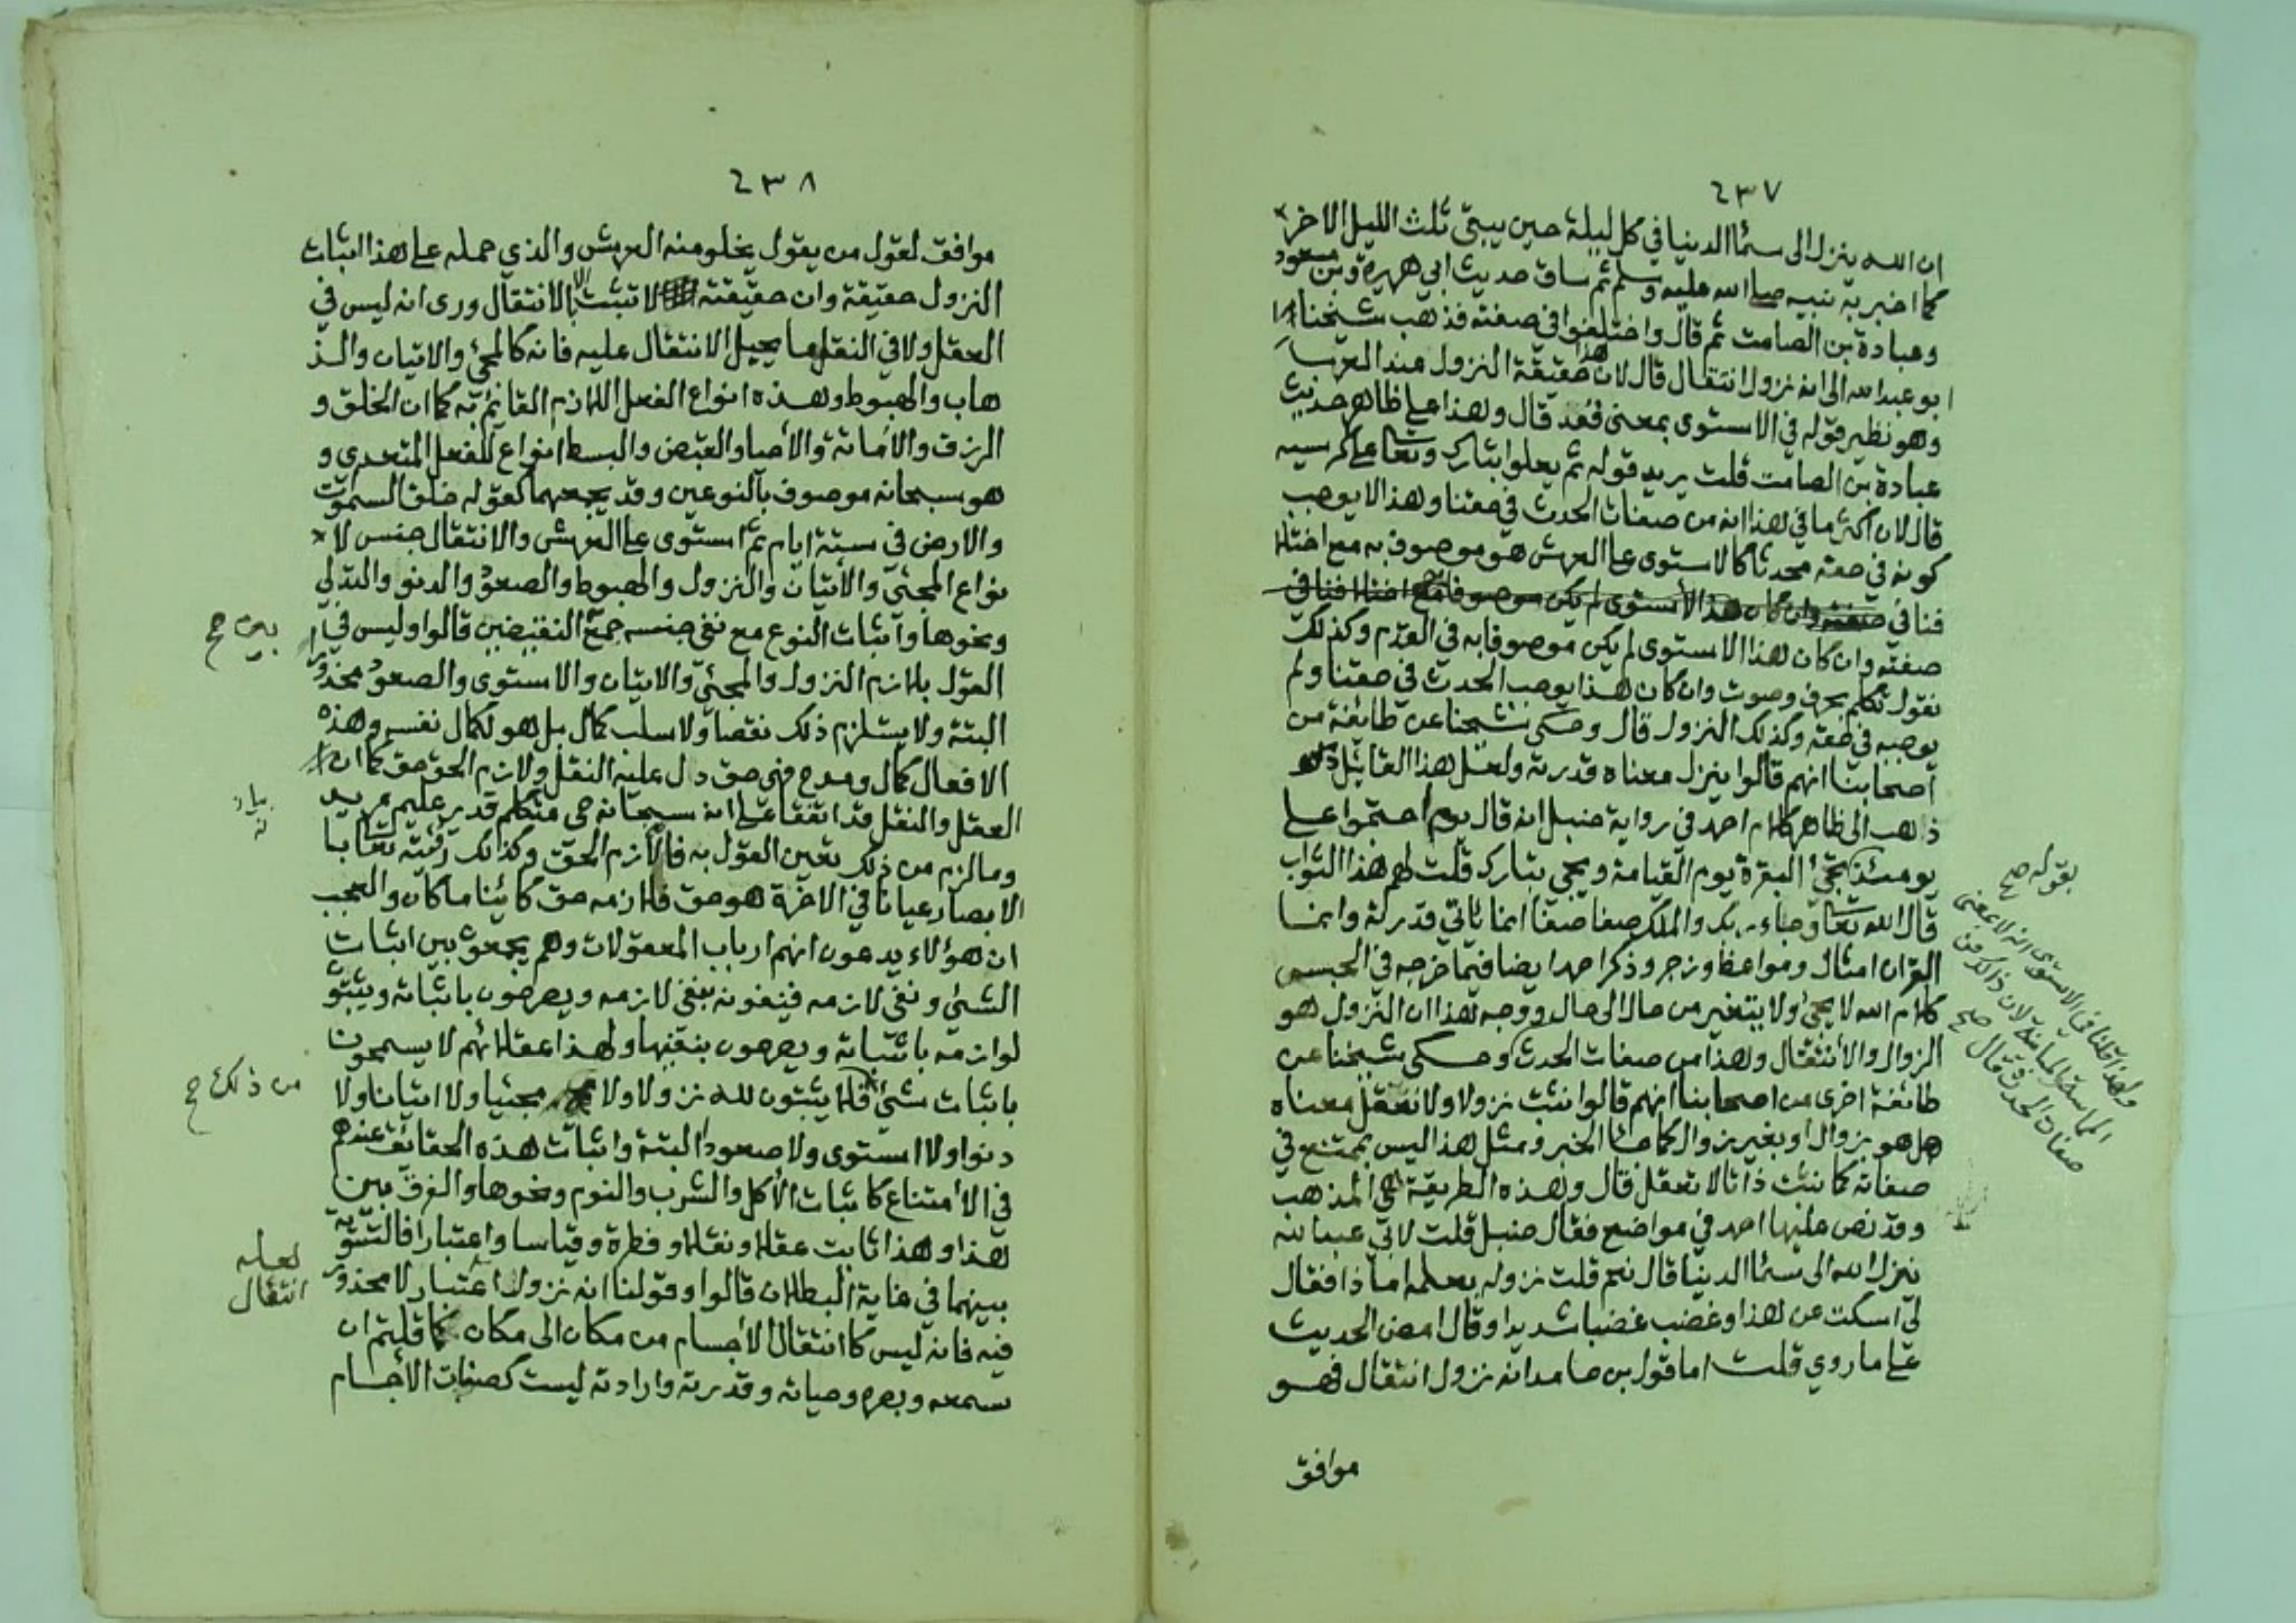 ٢٣٧
ان الله ينزل الى سمآ الدنيا في كل ليلة حين يبقى ثلث الليل الاخر
كما اخبر به نبيه صلى الله عليه وسلم ثم ساق حديث ابي هريرة وبن مسعود
وعبادة بن الصامت ثم قال واختلفوا في صفته فذهب شيخنا
ابو عبد الله الى انه نزول انتقال قال لان هذا حقيقة النزول عند العرب
وهو نظير قوله في الاستوى بمعنى قعد قال وهذا على ظاهر حديث
عبادة بن الصامت قلت يريد قوله ثم يعلوا تبارك وتعا على كرسيه
قال لان اكثر ما في هذا انه من صفات الحدث في حقنا وهذا لا يوجب
كونه في حقه محدثا كالاستوى على العرش هو موصوف به مع اختلا
فنا في صفته وان كان هذا الأستوى لم يكن موصوفا
صفته وان كان هذا الاستوى لم يكن موصوفا به في القدم وكذلك
نقول تكلم بحرف وصوت وان كان هذا يوجب الحدث في حقنا ولم
يوجبه في حقه وكذلك النزول قال وحكى شيخنا عن طائفة من
أصحابنا انهم قالوا ينزل معناه قدرته ولعل هذا القائل
ذهب الى ظاهر كلام احمد في رواية حنبل انه قال يوم احتجوا على
يومئذ تجئ البقرة يوم القيامة ويجي تبارك قلت لهم هذا الثواب
قال الله تعا وجاء ربك والملك صفا صفا انما ياتي قدرته وانما
القران امثال ومواعظ وزجر وذكر احمد ايضا فيما خرجه في الحبس
كلام الله لا يجئ ولا يتغير من حال الى حال ووجه هذا ان النزول هو
الزوال والأنتقال ولهذا من صفات الحدث وحكى شيخنا عن
طائفة اخرى من اصحابنا انهم قالوا نثبت نزولا ولا نعقل معناه
هل هو بزوال او بغير زوال كما جآ الخبر ومثل هذا ليس بممتنع في
صفاته كما نثبت ذاتا لا تعقل قال وهذه الطريقة هي المذهب
وقد نص عليها احمد في مواضع فقال حنبل قلت لابي عبد الله
ينزل الله الى سمآ الدنيا قال نعم قلت نزوله بعلمه اما ذا فقال
لي اسكت عن هذا وغضب غضبا شديدا وقال امض الحديث
على ما روي قلت اما قول بن حامد انه نزول انتقال فهو
موافق
بقوله صح
ولهذا قلنا في الاستوى انه لا بمعنى
المماسة والمباينة لان ذالك من
صفات الحدث قال صح
٢٣٨
موافق لقول من يقول يخلو منه العرش والذي حمله على هذا اثبات
النزول حقيقة وان حقيقته لا تثبت الا بالانتقال ورى انه ليس في
العقل ولا في النقل ما يحيل الانتقال عليه فانه كالمجئ والاتيان والذ
هاب والهبوط وهذه انواع الفعل اللازم القائم به كما ان الخلق و
الرزق والأماتة والأحيا والقبض والبسط انواع للفعل المتعدي و
هو سبحانه موصوف بالنوعين وقد يجمعهما كقوله خلق السموت
والارض في ستة ايام ثم استوى على العرش والانتقال جنس لا
نواع المجئي والأتيان والنزول والهبوط والصعود والدنو والتدلي
ونحوها واثبات النوع مع نفي جنسه جمع النقيضين قالوا وليس في
القول بلازم النزول والمجئي والاتيان والاستوى والصعود محذور
البتة ولا يستلزم ذلك نقصا ولا سلب كمال بل هو لكمال نفسه وهذه
الافعال كمال ومدح فهي حق دل عليه النقل ولازم الحق حق كما ان
العقل والنقل قد اتفقا على انه سبحانه حي متكلم قدير عليم مريد
وما لزم من ذلك تعين القول به فالازم الحق وكذالك رؤيته تعا با
لابصار عيانا في الاخرة هو حق فلازمه حق كائنا ما كان والعجب
ان هؤلاء يدعون انهم ارباب المعقولات وهم يجمعون بين اثبات
الشئ ونفي لازمه فينفونه بنفي لازمه ويصرحون باثباته ويثبتو
لوازمه باثباته ويصرحون بنفيها ولهذا عقلائهم لا يسمحون
باثبات شئ فلا يثبتون لله نزولا ولا مجئيا ولا اتيانا ولا
دنوا ولا استوى ولا صعودا البتة واثبات هذه الحقائق عندهم
في الأمتناع كاثبات الأكل والشرب والنوم ونحوها والفرق بين
هذا وهذا ثابت عقلا ونقلا وفطرة وقياسا واعتبارا فالتسوية
بينهما في غاية البطلان قالوا وقولنا انه نزول اعتبار لا محذور
فيه فانه ليس كانتقال الأجسام من مكان الى مكان كما قلتم ان
سمعه وبصره وحياته وقدرته وارادته ليست كصفات الأجسام
بين صح
من ذلك صح
لعله
انتقال